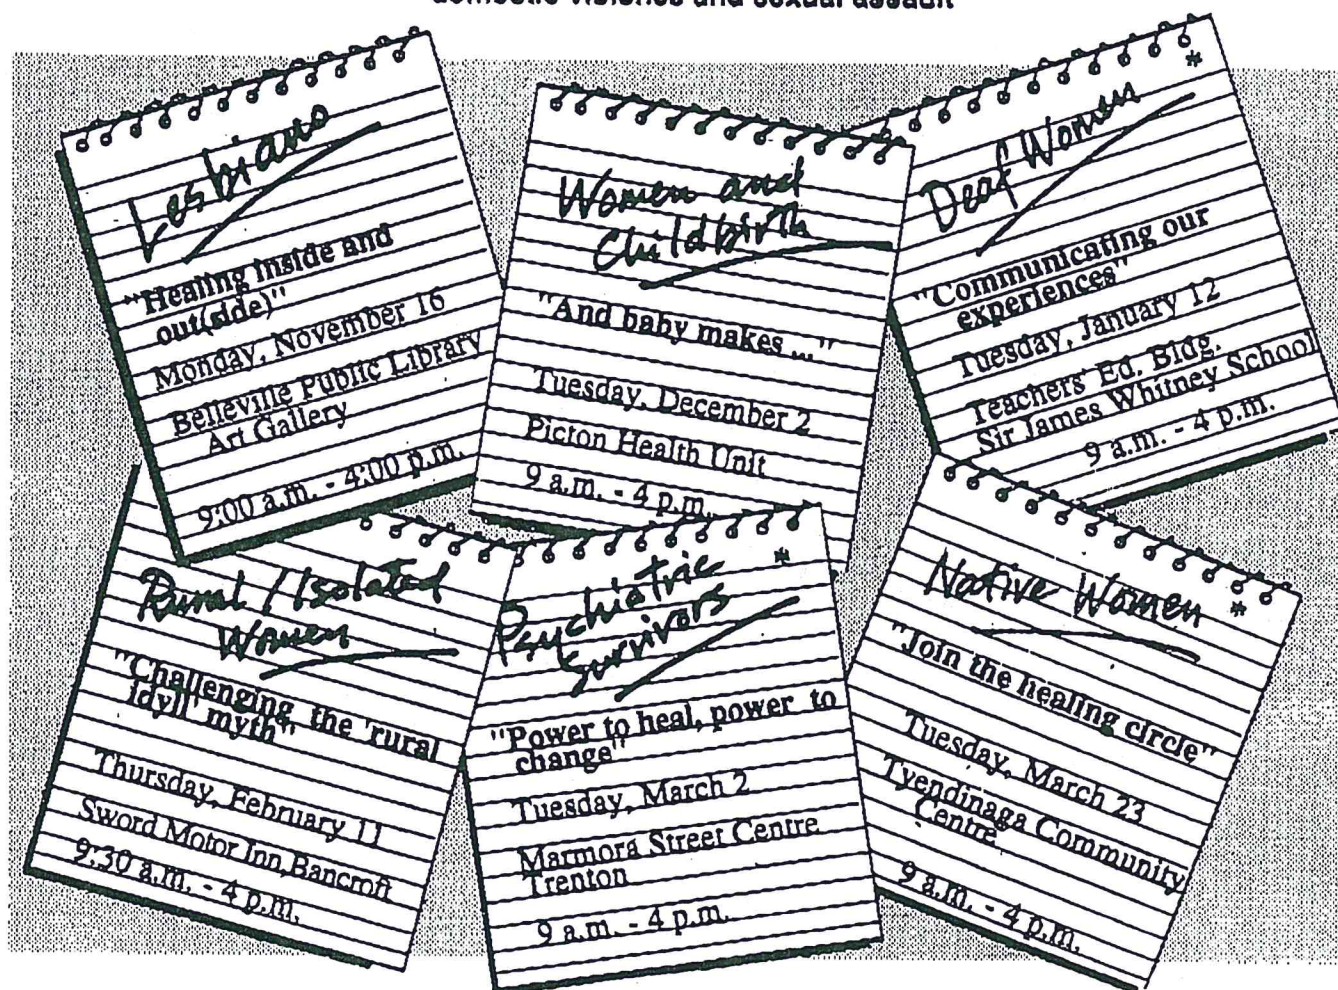 domestic violence and sexual assault
Lesbians
"Healing inside and
out(side)"
Monday, November 16
Belleville Public Library
Art Gallery
9:00 a.m. - 4:00 p.m.
Women and
Childbirth
"And baby makes ..."
Tuesday, December 2
Picton Health Unit
9 a.m. - 4 p.m.
*
Deaf Women
"Communicating our
experiences"
Tuesday, January 12
Teachers' Ed. Bldg.
Sir James Whitney School
9 a.m. - 4 p.m.
Rural / Isolated
Women
"Challenging the 'rural
idyll' myth"
Thursday, February 11
Sword Motor Inn, Bancroft
9:30 a.m. - 4 p.m.
*
Psychiatric
Survivors
"Power to heal, power to
change"
Tuesday, March 2
Marmora Street Centre
Trenton
9 a.m. - 4 p.m.
Native Women *
"Join the healing circle"
Tuesday, March 23
Tyendinaga Community
Centre
9 a.m. - 4 p.m.